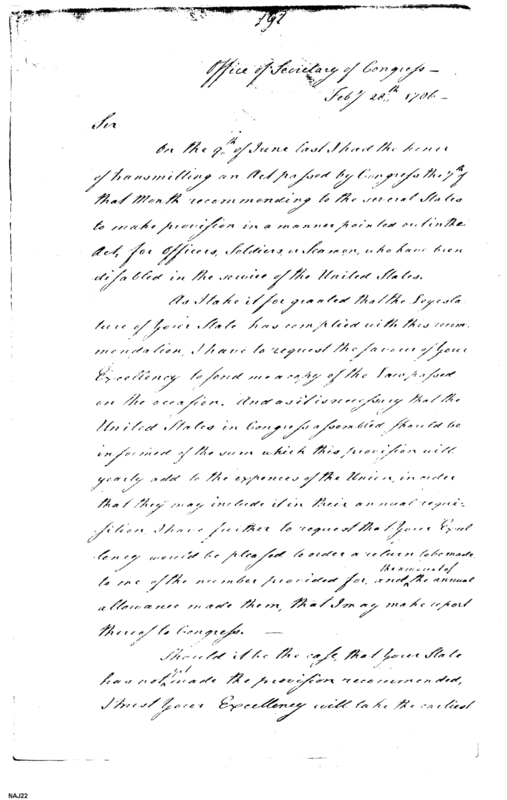 192
Office of Secretary of Congress —
Feby 28th 1786 —
Sir
On the 9th of June last I had the honor
of transmitting an Act passed by Congress the 7th of
that Month recommending to the several States
to make provision in a manner pointed out in the
Act, for Officers, Soldiers, or Seamen, who have been
disabled in the service of the United States.
As I take it for granted that the Legisla-
ture of Your State has complied with this recom-
mendation, I have to request the favour of Your
Excellency to send me a copy of the Law passed
on the occasion. And as it is necessary that the
United States in Congress assembled should be
informed of the sum which this provision will
yearly add to the expences of the Union, in order
that they may include it in their annual requi-
sition, I have further to request that Your Excel
lency would be pleased to order a return to be made
to me of the number provided for, and the amount of the annual
allowance made them, that I may make report
thereof to Congress. —
Should it be the case, that Your State
has not yet made the provision recommended,
I trust Your Excellency will take the earliest
NAJ22